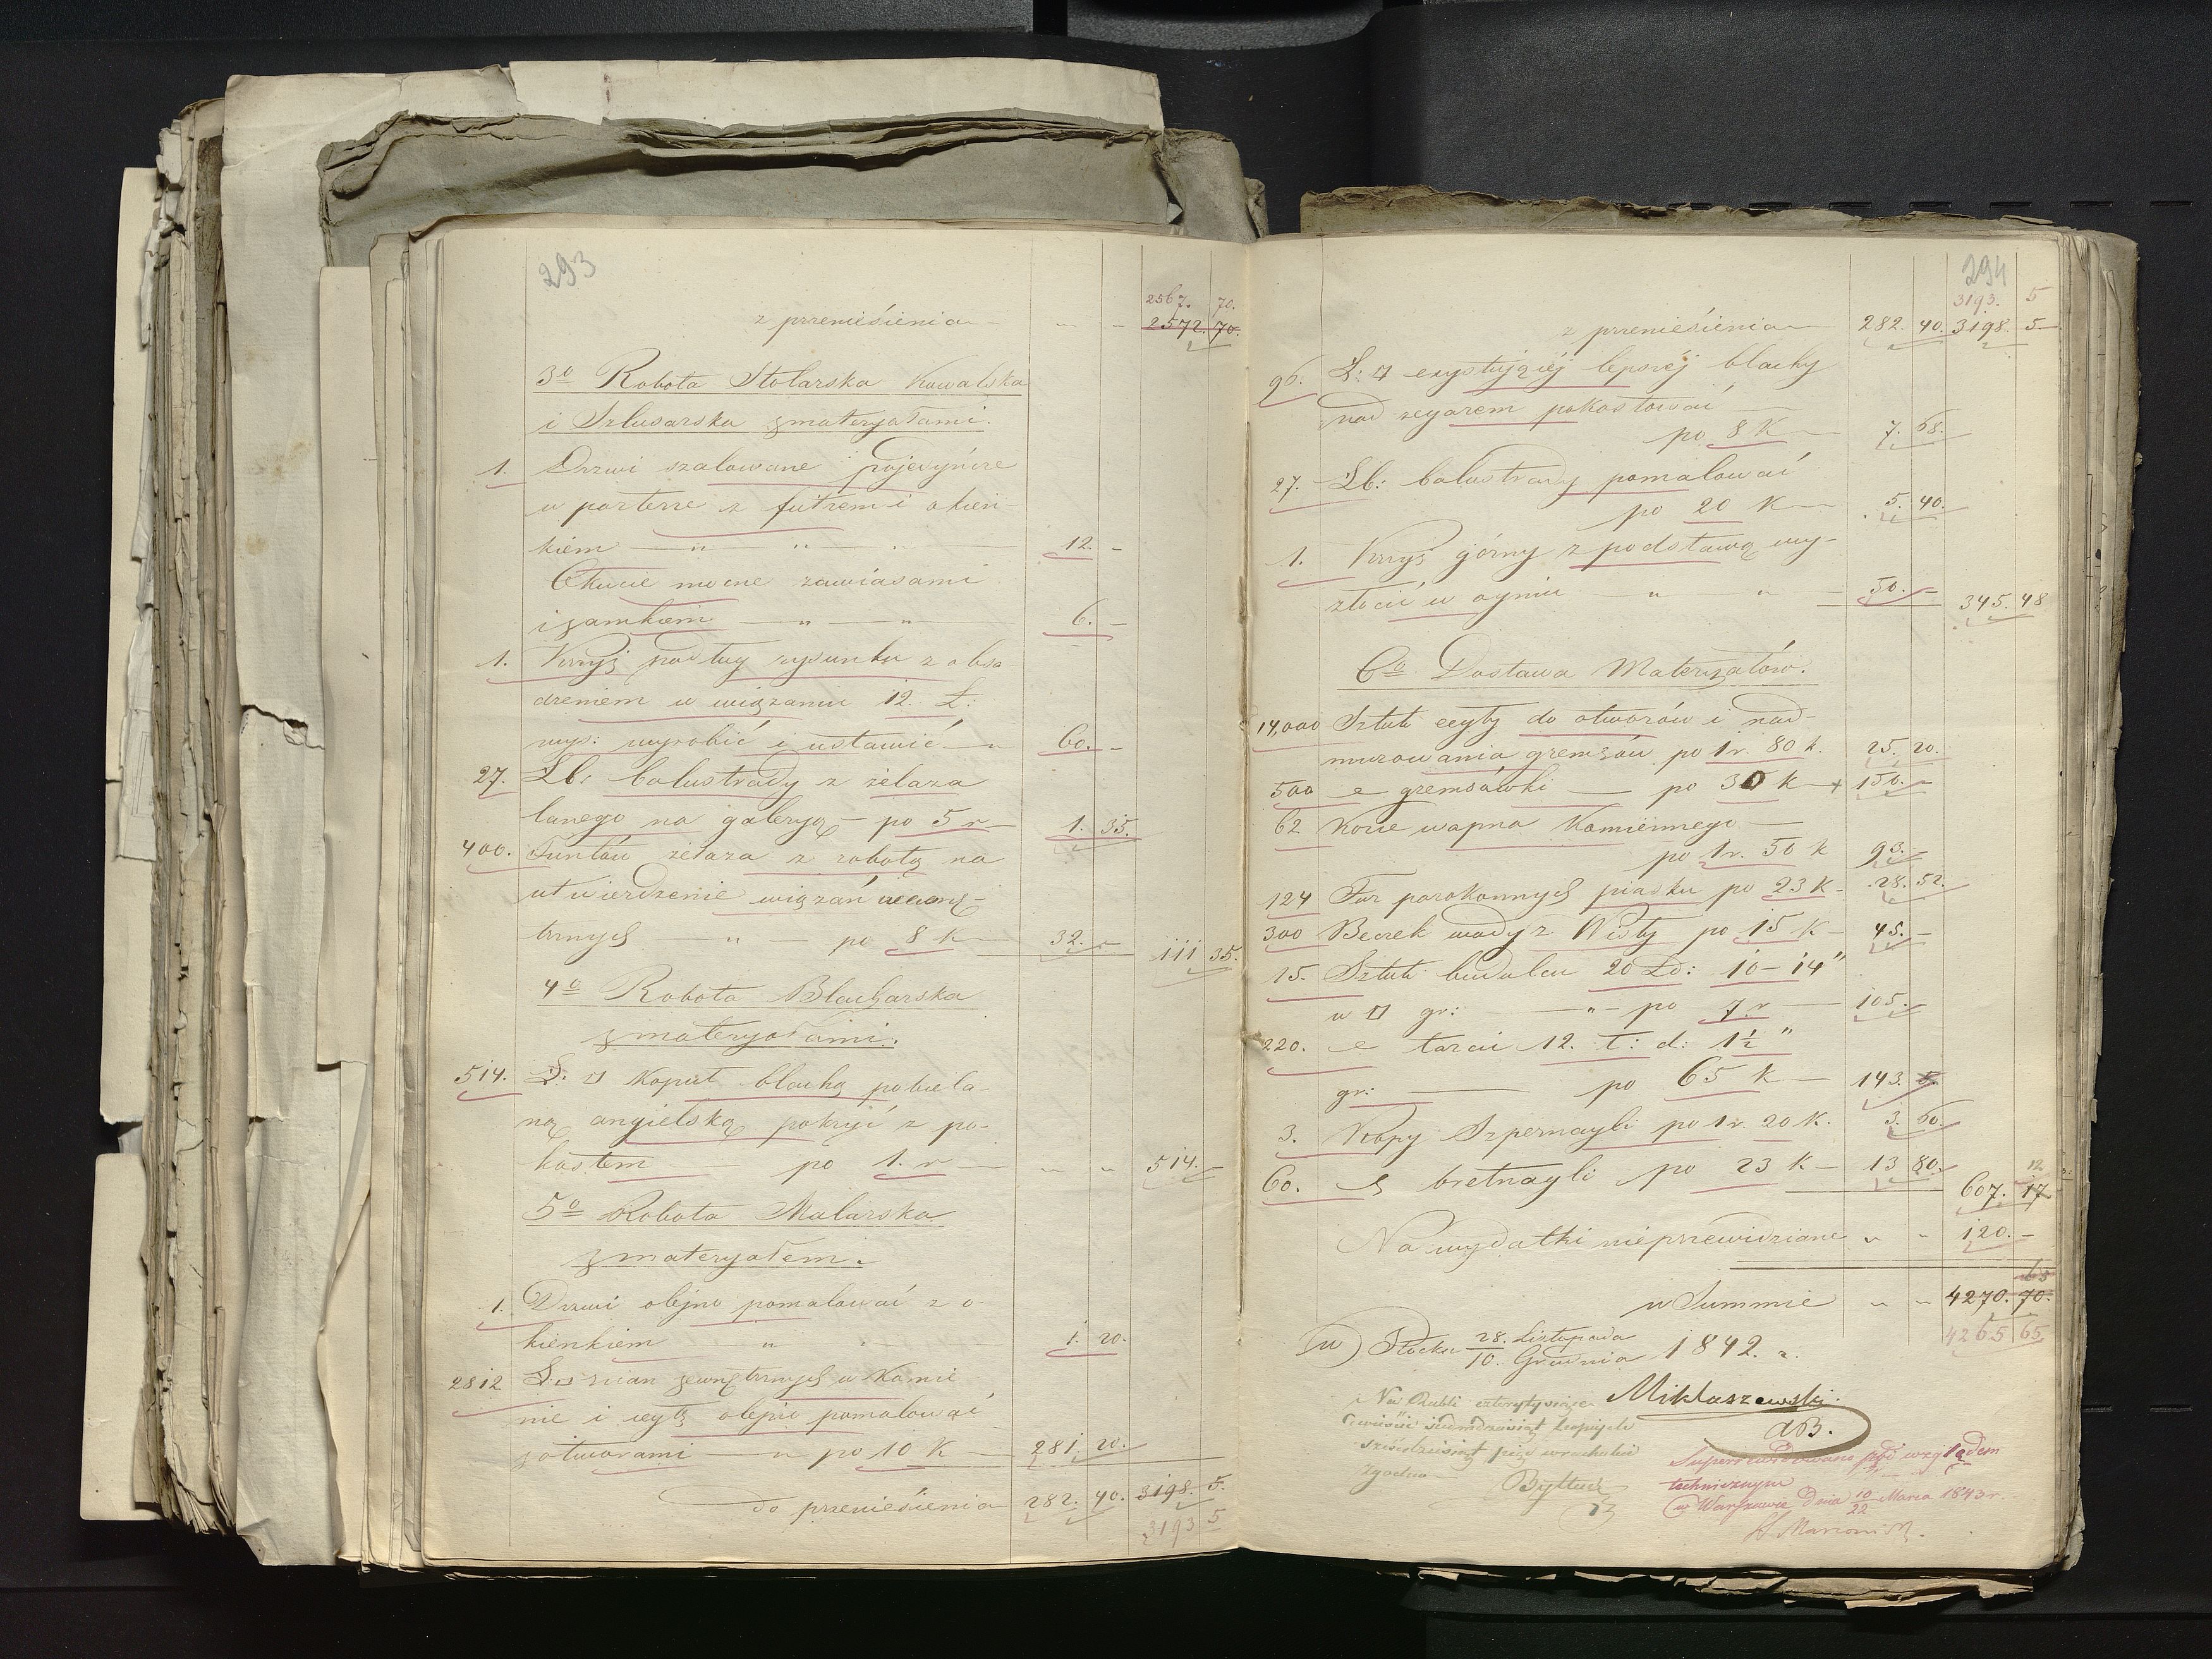 293
2567. 70.
z przeniesienia — „ — 2572. 70.
3o Robota Stolarska Kowalska
i Szlusarska z materyałami.
1. Drzwi szalowane pojedyńcze
w parterze z futrem i okien-
kiem — „ „ — „ — 12. –
Okucie mocne zawiasami
i zamkiem — „ — „ 6. –
1. Krzyż podług rysunku z obsa-
dzeniem w wiązaniu 12. Ł:
wys: wyrobić i ustawić — „ 60. –
27. Łb: balustrady z żelaza
lanego na galeryą — po 5 r 1. 35.
400. Funtów żelaza z robotą na
utwierdzenie wiązań wewnę-
trznych „ — po 8 k — 32. – 111 35.
4o Robota Blacharska
z materyałami.
514. Ł: □ Kopuł blachą pobiela-
ną angielską pokryć z po-
kostem — po 1. r — „ „ 514. –
5o Robota Malarska
z materyałem.
1. Drzwi olejno pomalować z o-
kienkiem „ „ 1. 20.
2812 Ł: □ ścian zewnętrznych w Kamie
nie i cegłę olejno pomalować
z otworami — „ po 10 K — 281. 20.
do przeniesienia 282. 40. 3198. 5.
3193 5
294
3193. 5
z przeniesienia 282. 40. 3198. 5.
96. Ł: □ exystującéj lepszéj blachy
nad zegarem pokostować
po 8 K — 7. 68.
27. Łb: balustrady pomalować
po 20 K — 5. 40.
1. Krzyż górny z podstawą wy-
złocić w ogniu — „ „ 50. – 345. 48
6o Dostawa Materyałów.
14,000 Sztuk cegły do otworów i nad-
murowania gzemsów po 1 r. 80 k. 25. 20.
500 — gzemsówki — po 30 k — 150. –
62 Korce wapna Kamiennego —
po 1 r. 50 k 93. –
124 Fur parokonnych piasku po 23 K — 28. 52.
300 Beczek wody z Wisły po 15 K — 45. –
15. Sztuk budulcu 20 Łd: 10–14"
w □ gr: — „ – po 7. r — 105. –
220. — tarcic 12. ł: d: 1½ "
gr: — po 65 k — 143. 5.
3. Kopy Szpernagli po 1 r. 20 K. 3. 60.
60. — bretnagli po 23 K — 13 80.
12
607. 17
Na wydatki nieprzewidziane „ „ 120. –
65
w Summie „ „ 4270. 70.
4265 65
(w) Płocku 28. Listopada / 10. Grudnia 1842. r.
Miklaszewski.
AB.
Na Rubli czterytysiące
dwieście siedmdziesiąt kopiejek
sześćdziesiąt pięć w rachubie
zgodna —
Superrewidowano pod względem
technicznym
w Warszawie dnia 10/22 Marca 1843 r.
H Marconi